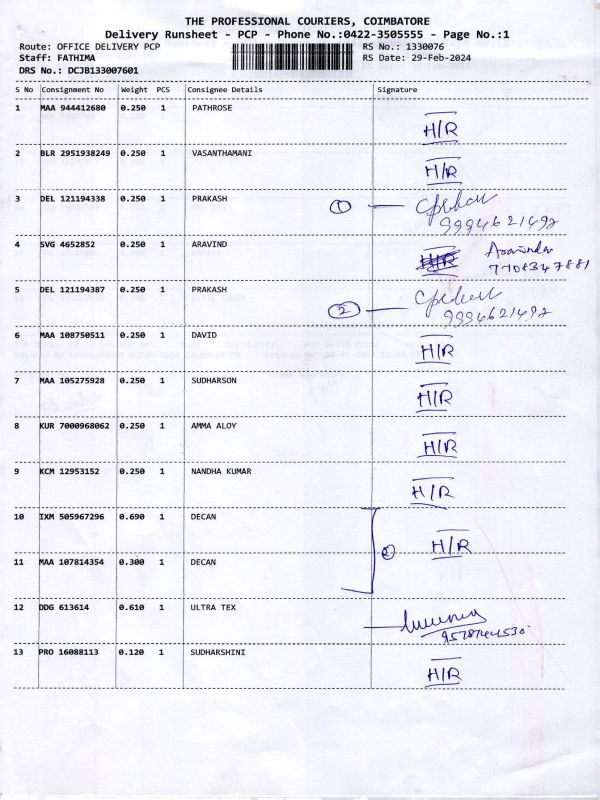 THE PROFESSIONAL COURIERS, COIMBATORE
Delivery Runsheet - PCP - Phone No.:0422-3505555 - Page No.:1
Route: OFFICE DELIVERY PCP RS No.: 1330076
Staff: FATHIMA RS Date: 29-Feb-2024
DRS No.: DCJB133007601
S No Consignment No Weight PCS Consignee Details Signature
1 MAA 944412680 0.250 1 PATHROSE H/R
2 BLR 2951938249 0.250 1 VASANTHAMANI H/R
3 DEL 121194338 0.250 1 PRAKASH 1
9994621492
4 SVG 4652852 0.250 1 ARAVIND H/R Aravindan
7708347881
5 DEL 121194387 0.250 1 PRAKASH 2
9994621492
6 MAA 108750511 0.250 1 DAVID H/R
7 MAA 105275928 0.250 1 SUDHARSON H/R
8 KUR 7000968062 0.250 1 AMMA ALOY H/R
9 KCM 12953152 0.250 1 NANDHA KUMAR H/R
10 IXM 505967296 0.690 1 DECAN 2 H/R
11 MAA 107814354 0.300 1 DECAN
12 DDG 613614 0.610 1 ULTRA TEX
13 PRO 16088113 0.120 1 SUDHARSHINI H/R